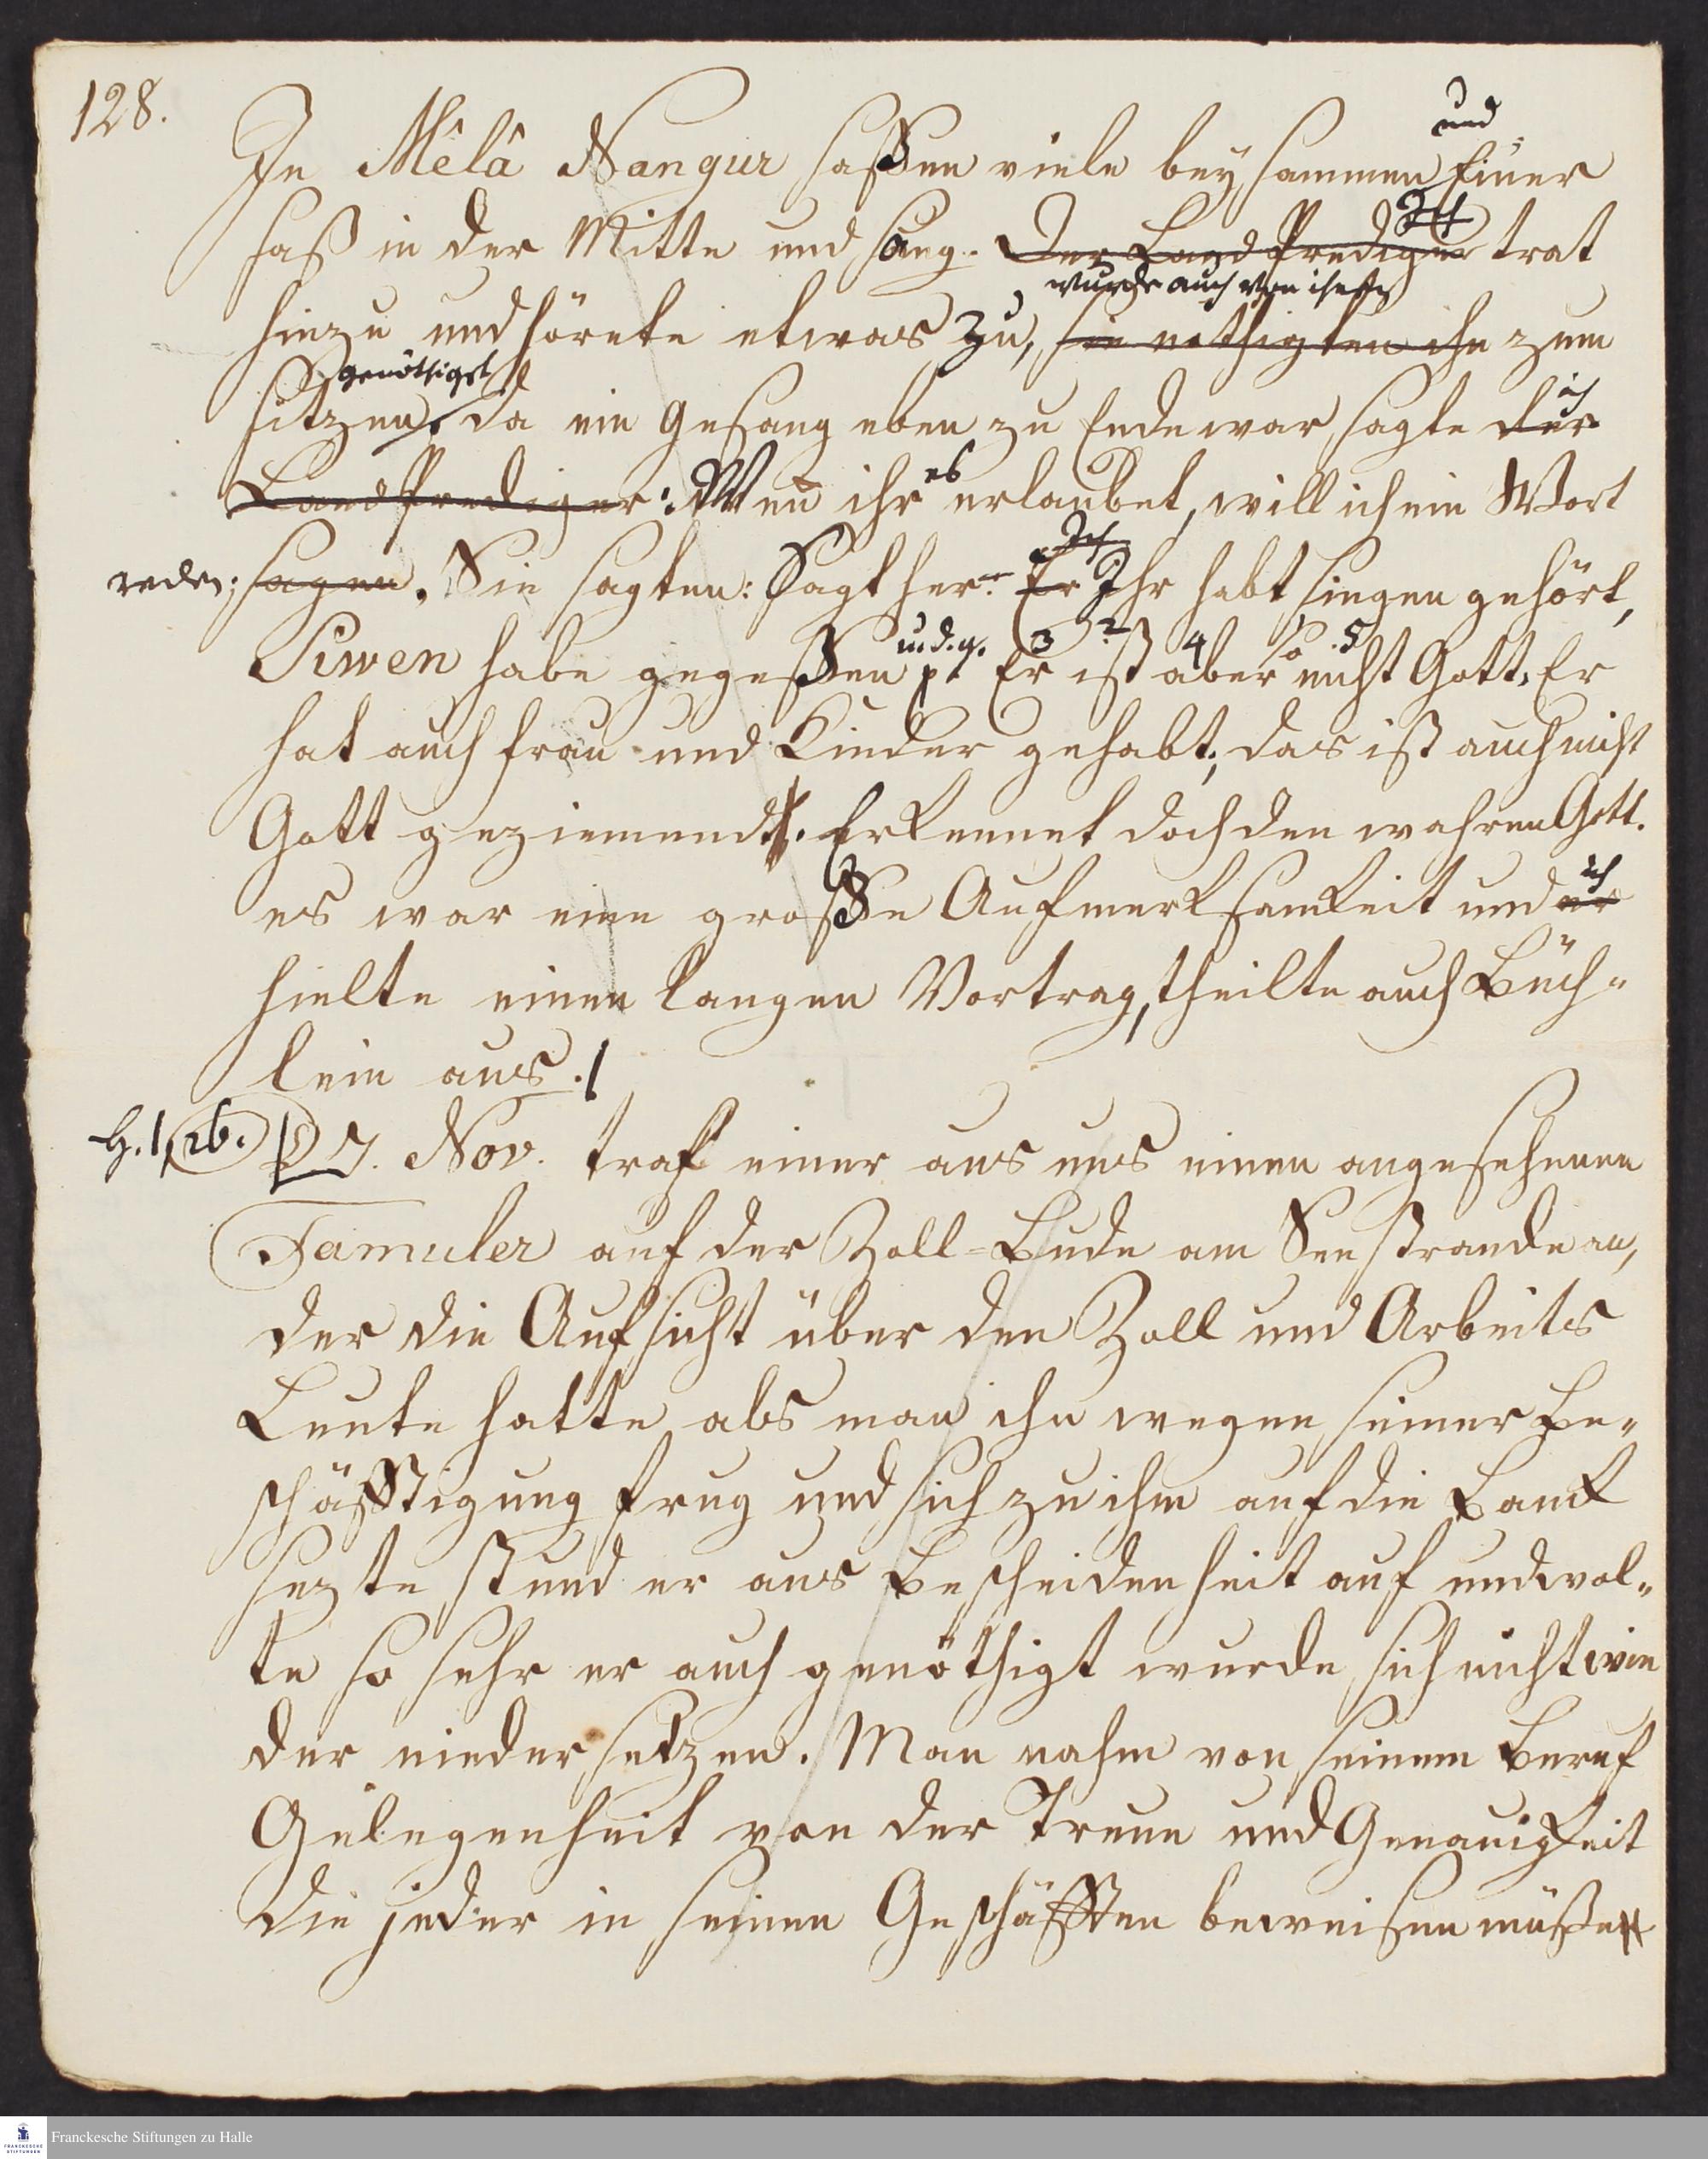 128.
In Mêlâ Nangur saßen viele beysammen und Einer
saß in der Mitte und sang. Der Land Prediger Ich trat
hinzu und hörete etwas zu, sie nothigten ihn wurde auch von ihnen zum
sitzen genöthiget. da ein Gesang eben zu Ende war, sagte der ich
Land Prediger: Wen̄ ihr es erlaubet, will ich ein Wort
reden; sagen. Sie sagten: Sagt her. Er Ich Ihr habt singen gehört,
Siwen habe gegeßen pt u. d. g. Er ist aber so nicht Gott. Er
3 2 4 1 5
hat auch Frau und Kinder gehabt; das ist auch nicht
Gott geziemend. Erkennet doch den wahren Gott.
es war eine große Aufmerksamkeit und er ich
hielte einen langen Vortrag, theilte auch Büch-
lein aus.
27. Nov. traf einer aus uns einen angesehenen
Tamuler auf der Zoll-Bude am Seestrande an,
der die Aufsicht über den Zoll und Arbeits
Leute hatte als man ihn wegen seiner Be-
schäfftigung frug und sich zu ihm auf die Bank
sezte stund er aus Bescheidenheit auf und wol-
te so sehr er auch genöthigt wurde sich nicht wie
der niedersetzen. Man nahm von seinem Beruf
Gelegenheit von der Treue und Genauigkeit
die jeder in seinen Geschäfften beweisen müße
Franckesche Stiftungen zu Halle